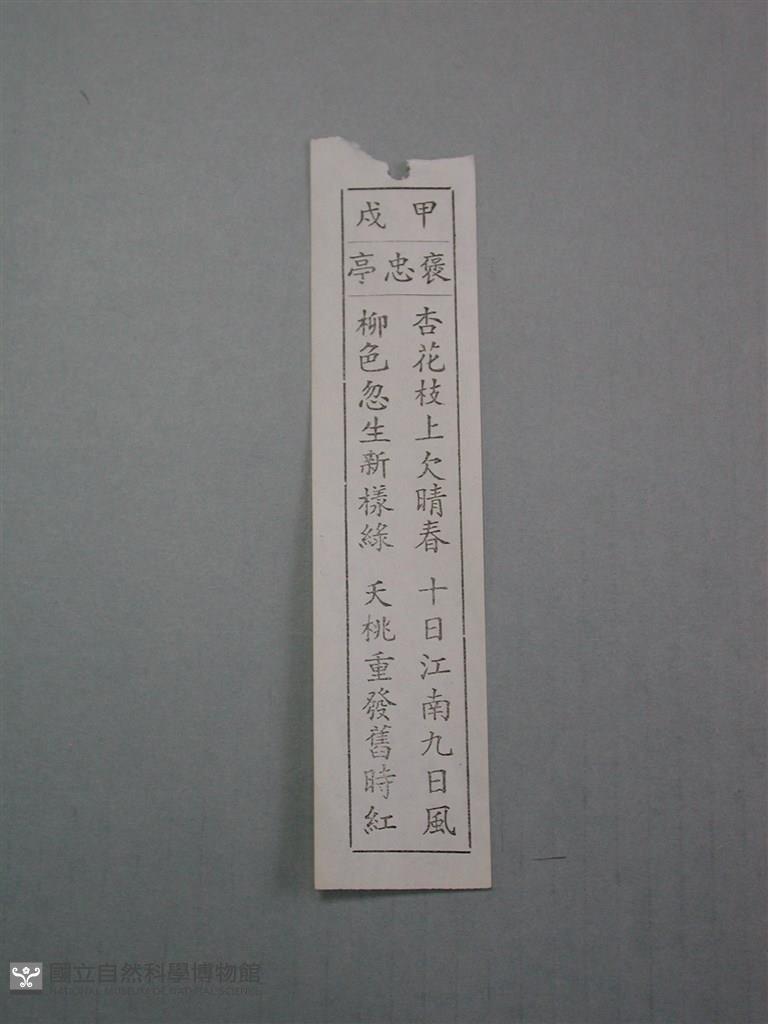 甲戌
褒忠亭
杏花枝上欠晴春 十日江南九日風
柳色忽生新樣綠 夭桃重發舊時紅
國立自然科學博物館
NATIONAL MUSEUM OF NATURAL SCIENCE